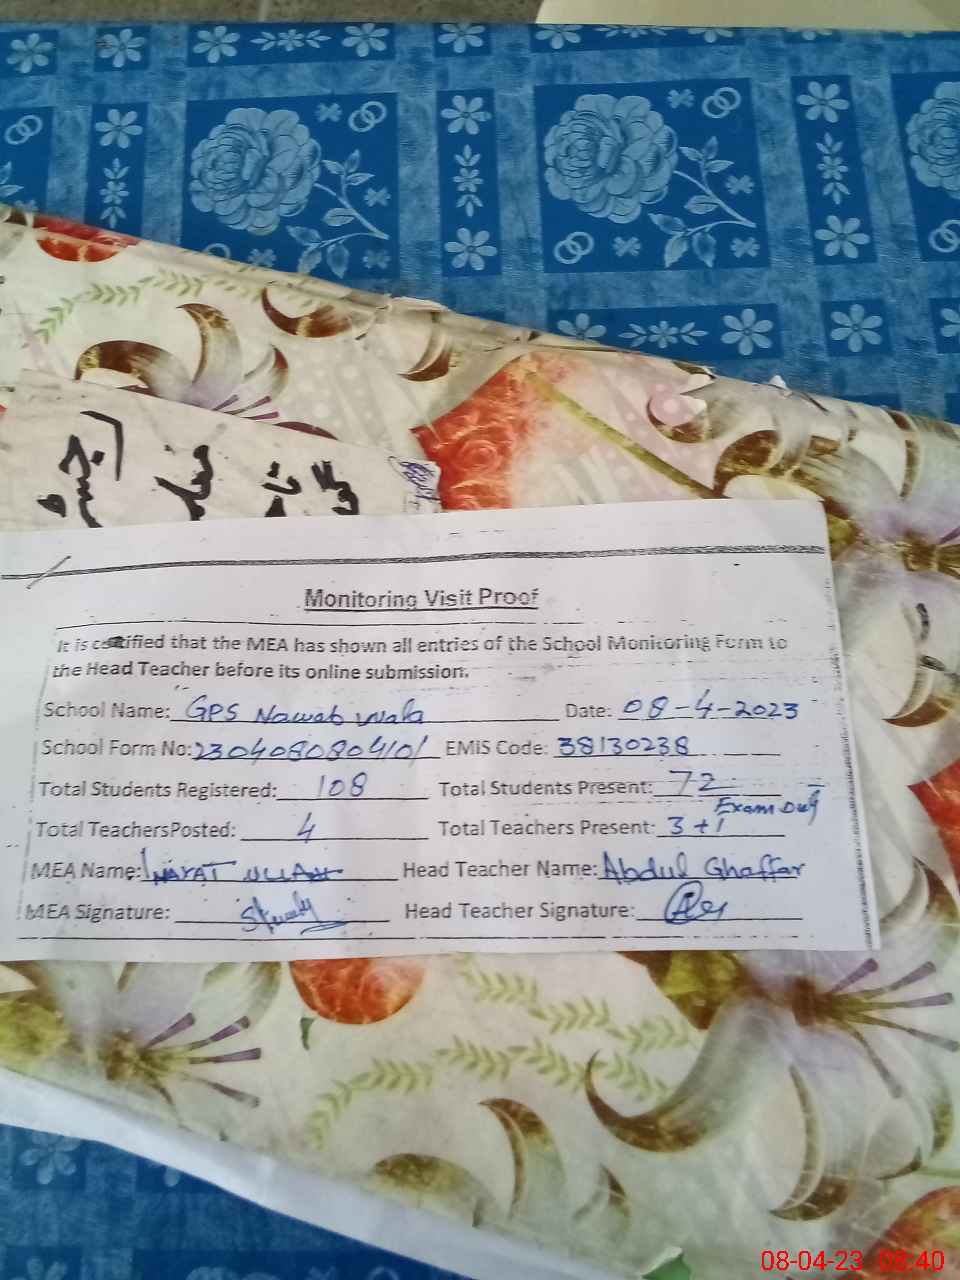 Monitoring Visit Proof
It is certified that the MEA has shown all entries of the School Monitoring Form to
the Head Teacher before its online submission.
School Name: GPS Nawab wala Date: 08-4-2023
School Form No: 230408080410/ EMIS Code: 38130238
Total Students Registered: 108 Total Students Present: 72
Exam Duty
Total TeachersPosted: 4 Total Teachers Present: 3+1
MEA Name: INAYAT ULLAH Head Teacher Name: Abdul Ghaffar
MEA Signature: Head Teacher Signature:
08-04-23 08:40